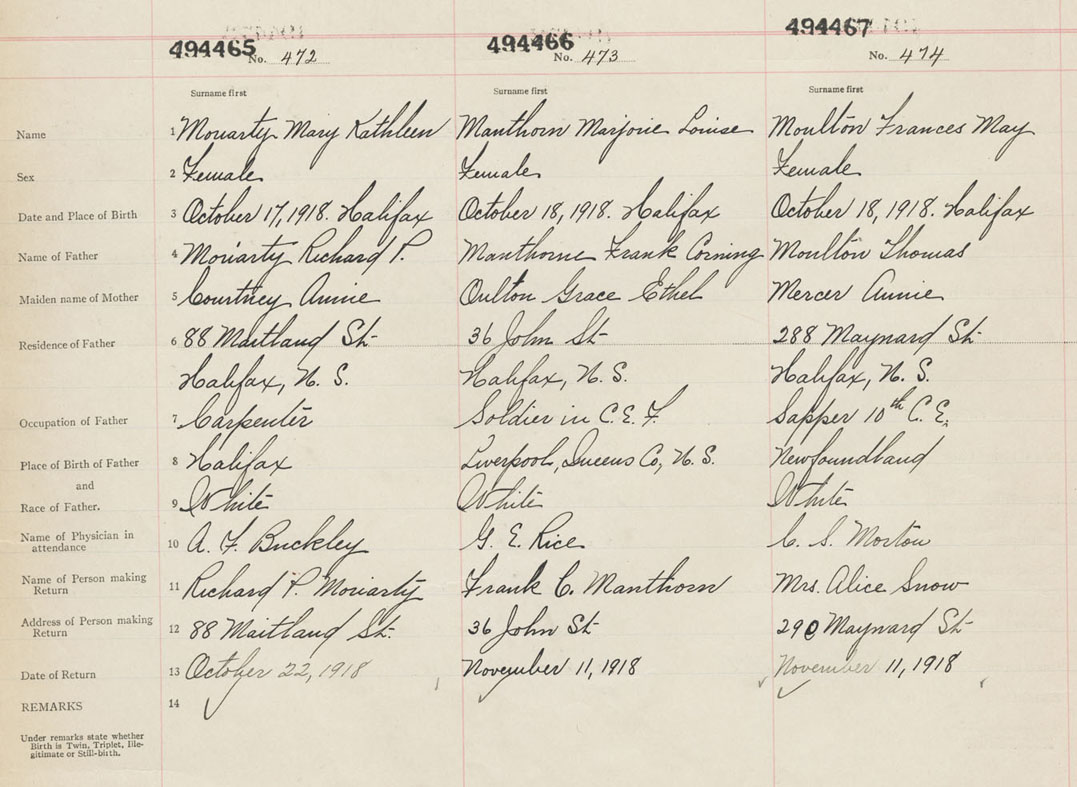 494465 494466 494467
No. 472 No. 473 No. 474
Surname first Surname first Surname first
Name 1 Moriarty Mary Kathleen Manthorn Marjorie Louise Moulton Frances May
Sex 2 Female Female Female
Date and Place of Birth 3 October 17, 1918. Halifax October 18, 1918. Halifax October 18, 1918. Halifax
Name of Father 4 Moriarty Richard P. Manthorne Frank Corning Moulton Thomas
Maiden name of Mother 5 Courtney Annie Oulton Grace Ethel Mercer Annie
Residence of Father 6 88 Maitland St. 36 John St 288 Maynard St
Halifax, N. S. Halifax, N. S. Halifax, N. S.
Occupation of Father 7 Carpenter Soldier in C. E. F. Sapper 10th C. E.
Place of Birth of Father 8 Halifax Liverpool, Queens Co, N. S. Newfoundland
and
Race of Father. 9 White White White
Name of Physician in attendance 10 A. F. Buckley G. E. Rice C. S. Morton
Name of Person making Return 11 Richard P. Moriarty Frank C. Manthorn Mrs. Alice Snow
Address of Person making Return 12 88 Maitland St. 36 John St 290 Maynard St
Date of Return 13 October 22, 1918 November 11, 1918 November 11, 1918
REMARKS 14
Under remarks state whether
Birth is Twin, Triplet, Ille-
gitimate or Still-birth.